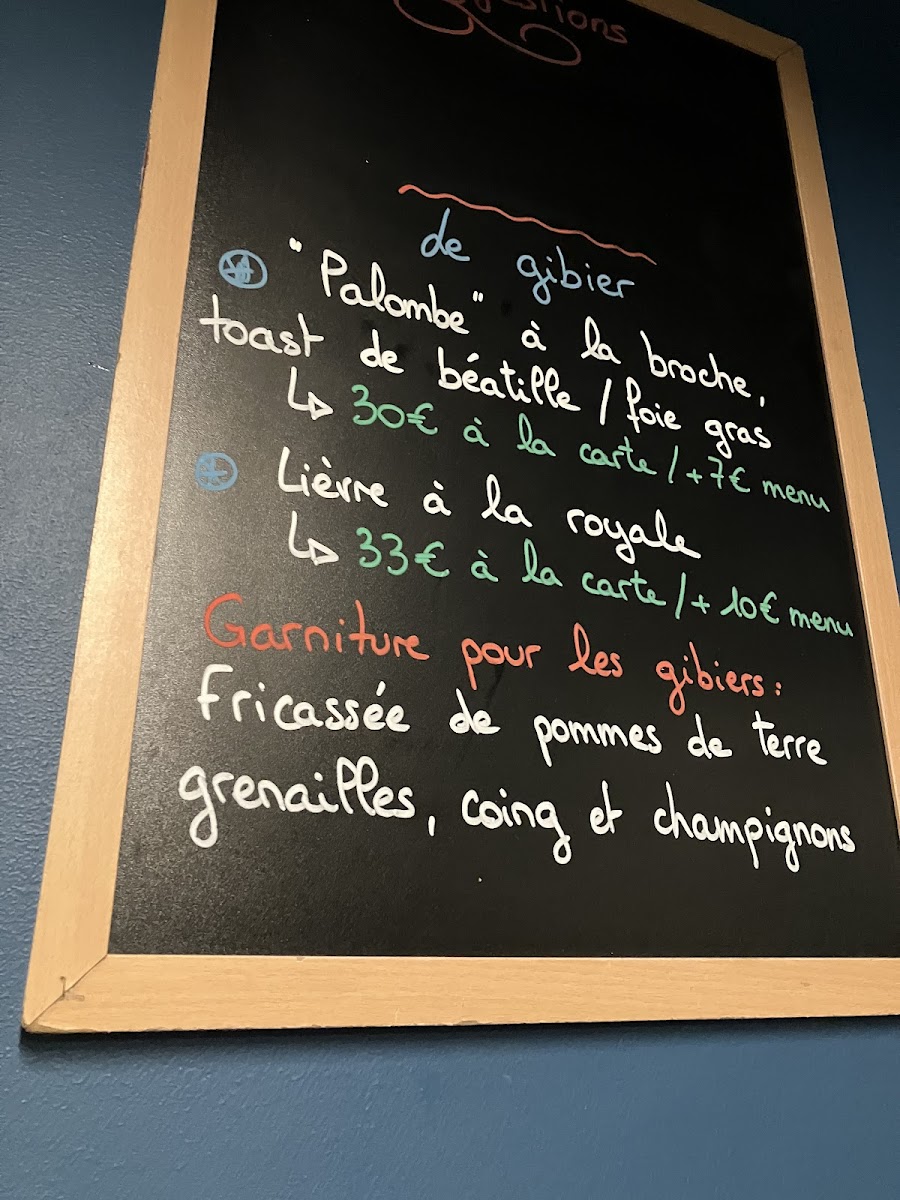 Suggestions
de gibier
"Palombe" à la broche,
toast de béatille / foie gras
↳ 30€ à la carte / +7€ menu
Lièvre à la royale
↳ 33€ à la carte / + 10€ menu
Garniture pour les gibiers:
Fricassée de pommes de terre
grenailles, coing et champignons